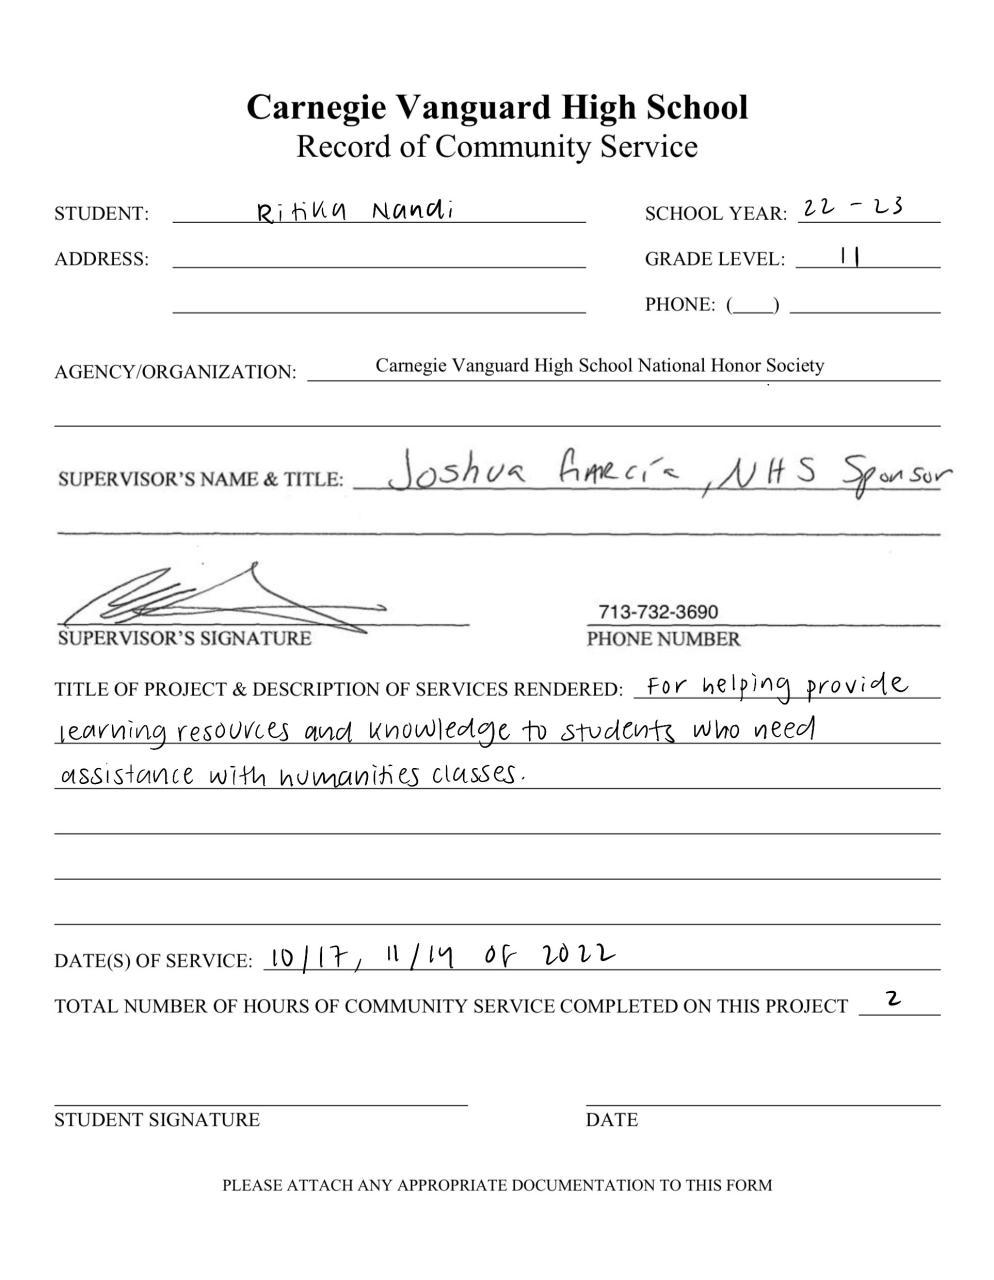 Carnegie Vanguard High School
Record of Community Service
STUDENT: Ritika Nandi SCHOOL YEAR: 22 - 23
ADDRESS: GRADE LEVEL: 11
PHONE: (____)
AGENCY/ORGANIZATION: Carnegie Vanguard High School National Honor Society
SUPERVISOR'S NAME & TITLE: Joshua García, NHS Sponsor
713-732-3690
SUPERVISOR'S SIGNATURE PHONE NUMBER
TITLE OF PROJECT & DESCRIPTION OF SERVICES RENDERED: For helping provide
learning resources and knowledge to students who need
assistance with humanities classes.
DATE(S) OF SERVICE: 10/17, 11/14 of 2022
TOTAL NUMBER OF HOURS OF COMMUNITY SERVICE COMPLETED ON THIS PROJECT 2
STUDENT SIGNATURE DATE
PLEASE ATTACH ANY APPROPRIATE DOCUMENTATION TO THIS FORM